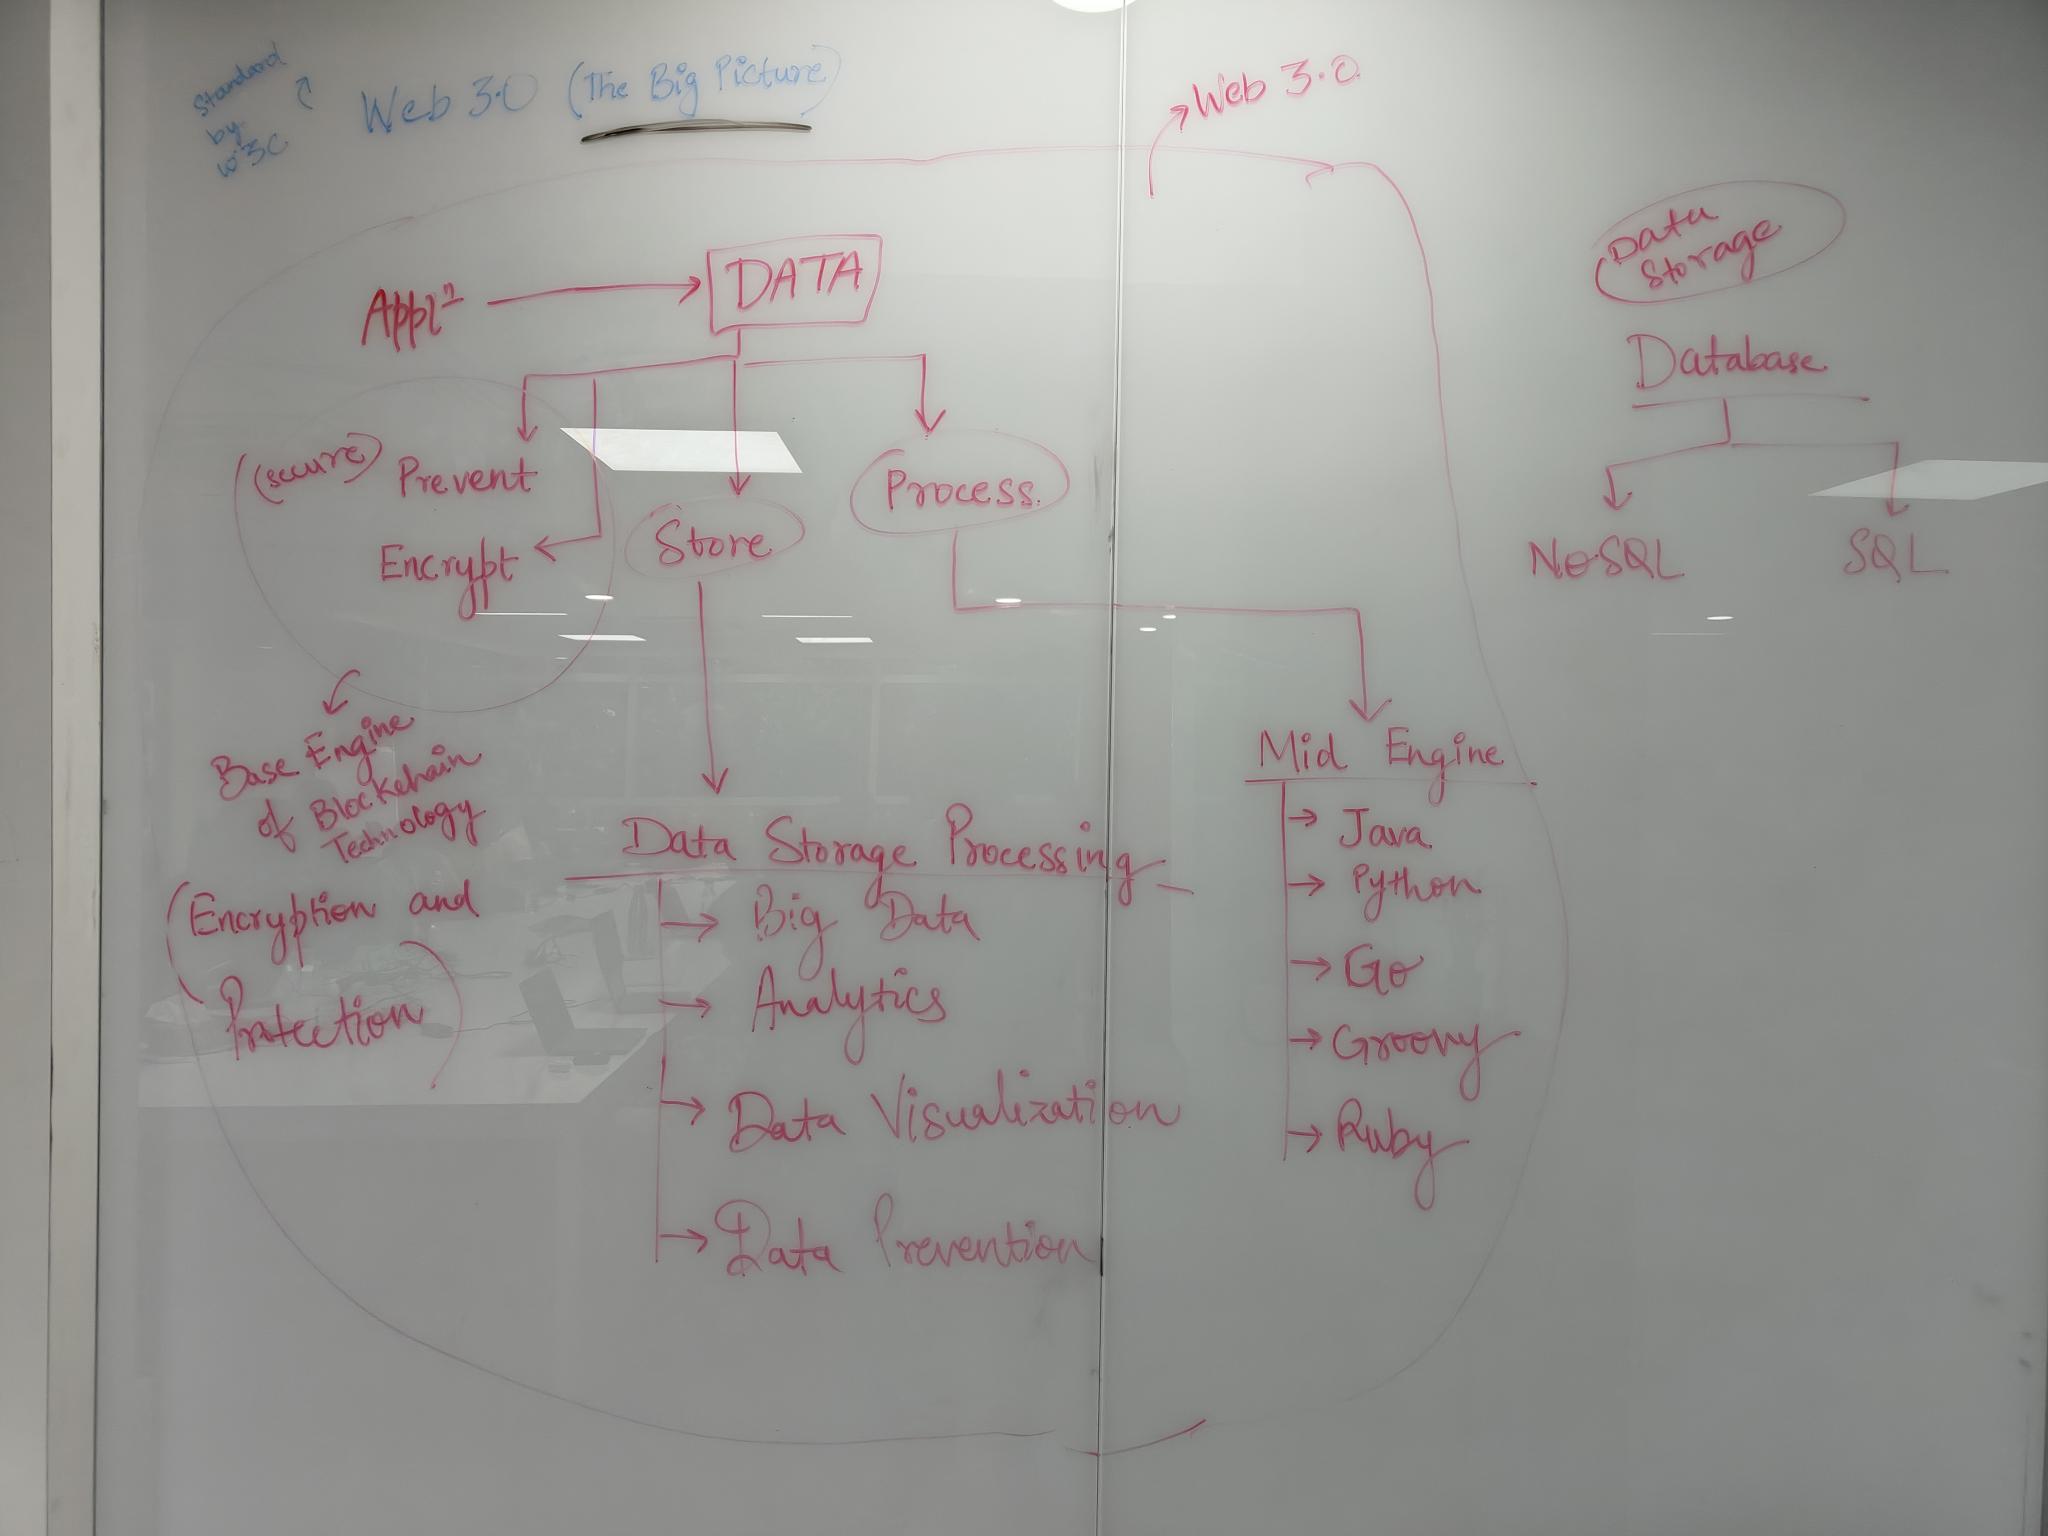 Standard
by
W3C
Web 3.0 (The Big Picture)
Web 3.0
Applⁿ
DATA
(secure) Prevent
Encrypt
Store
Process.
Base Engine
of Blockchain
Technology
(Encryption and
Protection)
Data Storage Processing
Big Data
Analytics
Data Visualization
Data Prevention
Mid Engine
Java
Python
Go
Groovy
Ruby
Data
Storage
Database
NoSQL
SQL